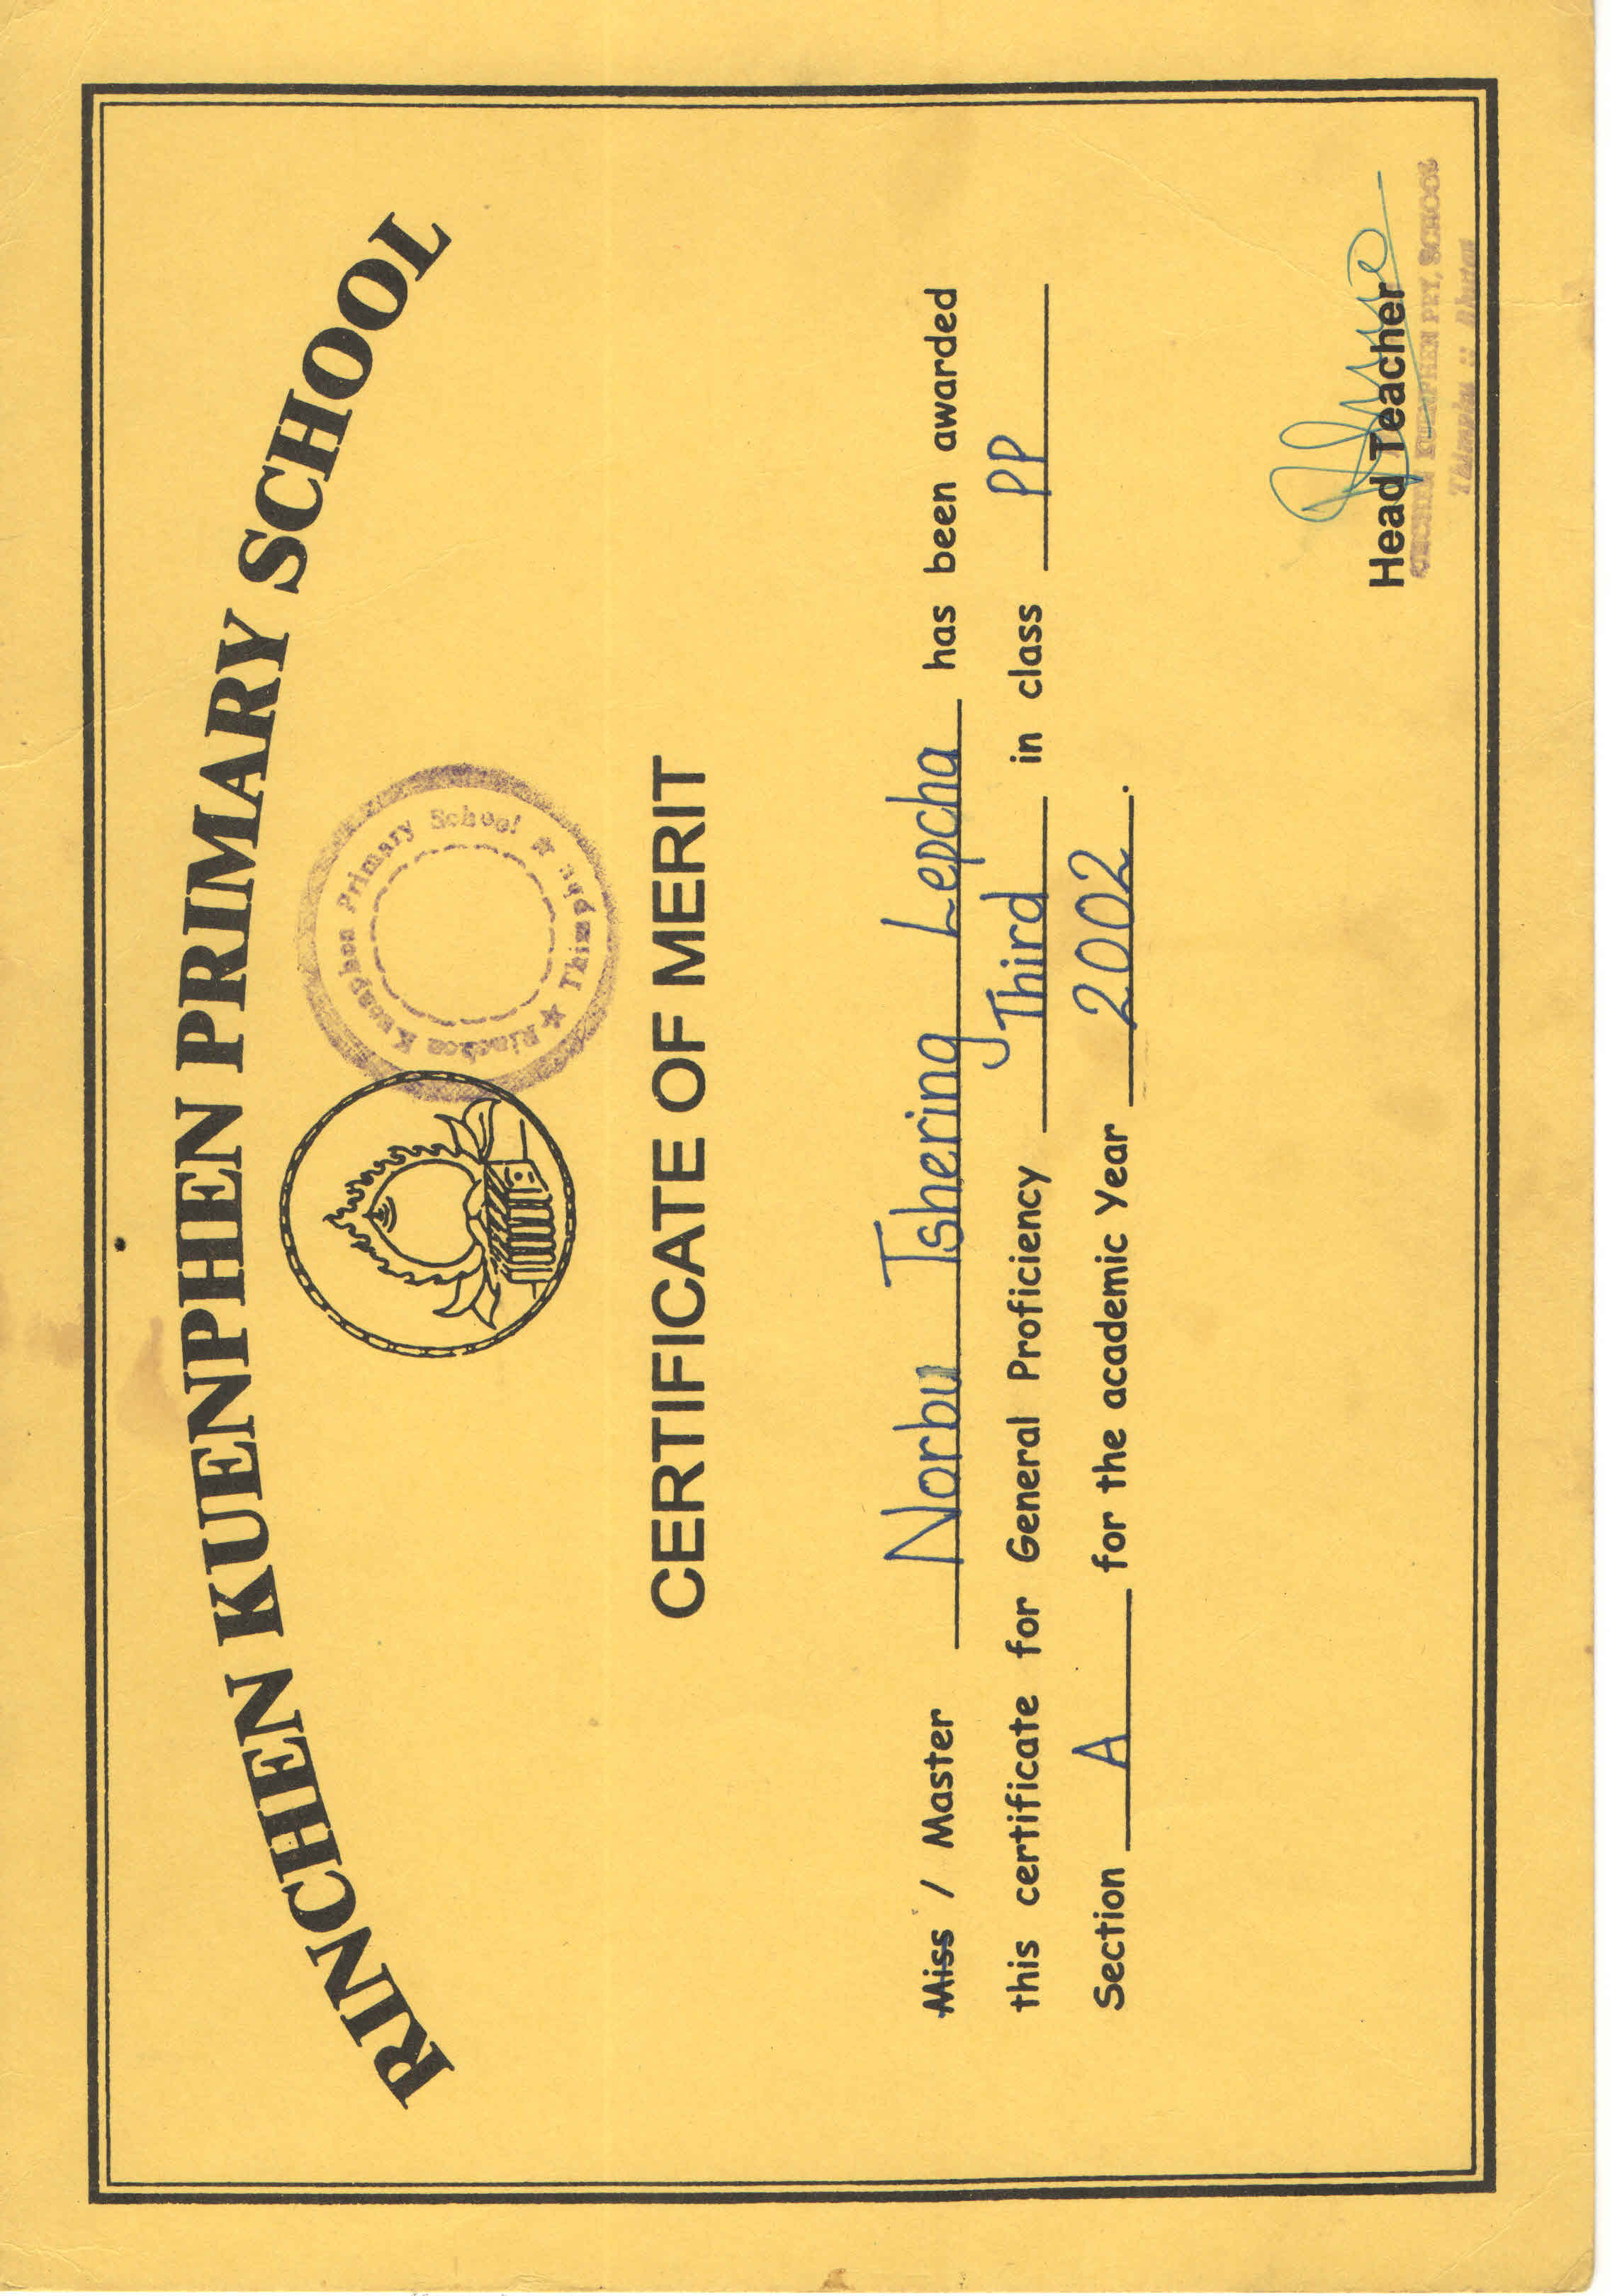 RINCHEN KUENPHEN PRIMARY SCHOOL
Rinchen Kuenphen Primary School
Thimphu
CERTIFICATE OF MERIT
Miss / Master Norbu Tshering Lepcha has been awarded
this certificate for General Proficiency Third in class PP
Section A for the academic Year 2002.
Head Teacher
RINCHEN KUENPHEN PRY, SCHOOL
Thimphu :: Bhutan